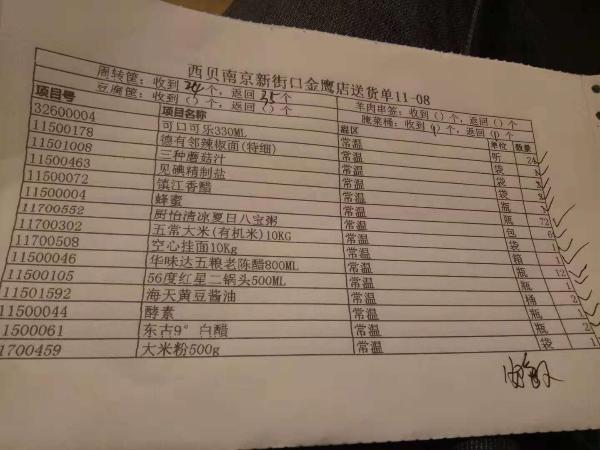 西贝南京新街口金鹰店送货单11-08
周转筐：收到 24 个，返回 25 个 羊肉串签：收到（）个，返回（）个
豆腐筐：收到（）个，返回（）个 腌菜桶：收到(0)个，返回(0)个
项目号 项目名称 温区 单位 数量
32600004 可口可乐330ML 常温 听 24
11500178 德有邻辣椒面(特细) 常温 袋
11501008 三种蘑菇汁 常温 袋
11500463 见碘精制盐 常温 袋
11500072 镇江香醋 常温
11500004 蜂蜜 常温
11700552 厨怡清凉夏日八宝粥 常温
11700302 五常大米(有机米)10KG 常温
11700508 空心挂面10Kg 常温
11500046 华味达五粮老陈醋800ML 常温
11500105 56度红星二锅头500ML 常温 瓶
11501592 海天黄豆酱油 常温 桶 2
11500044 酵素 常温 瓶
1500061 东古9°白醋 常温 瓶 2
1700459 大米粉500g 常温 袋 1